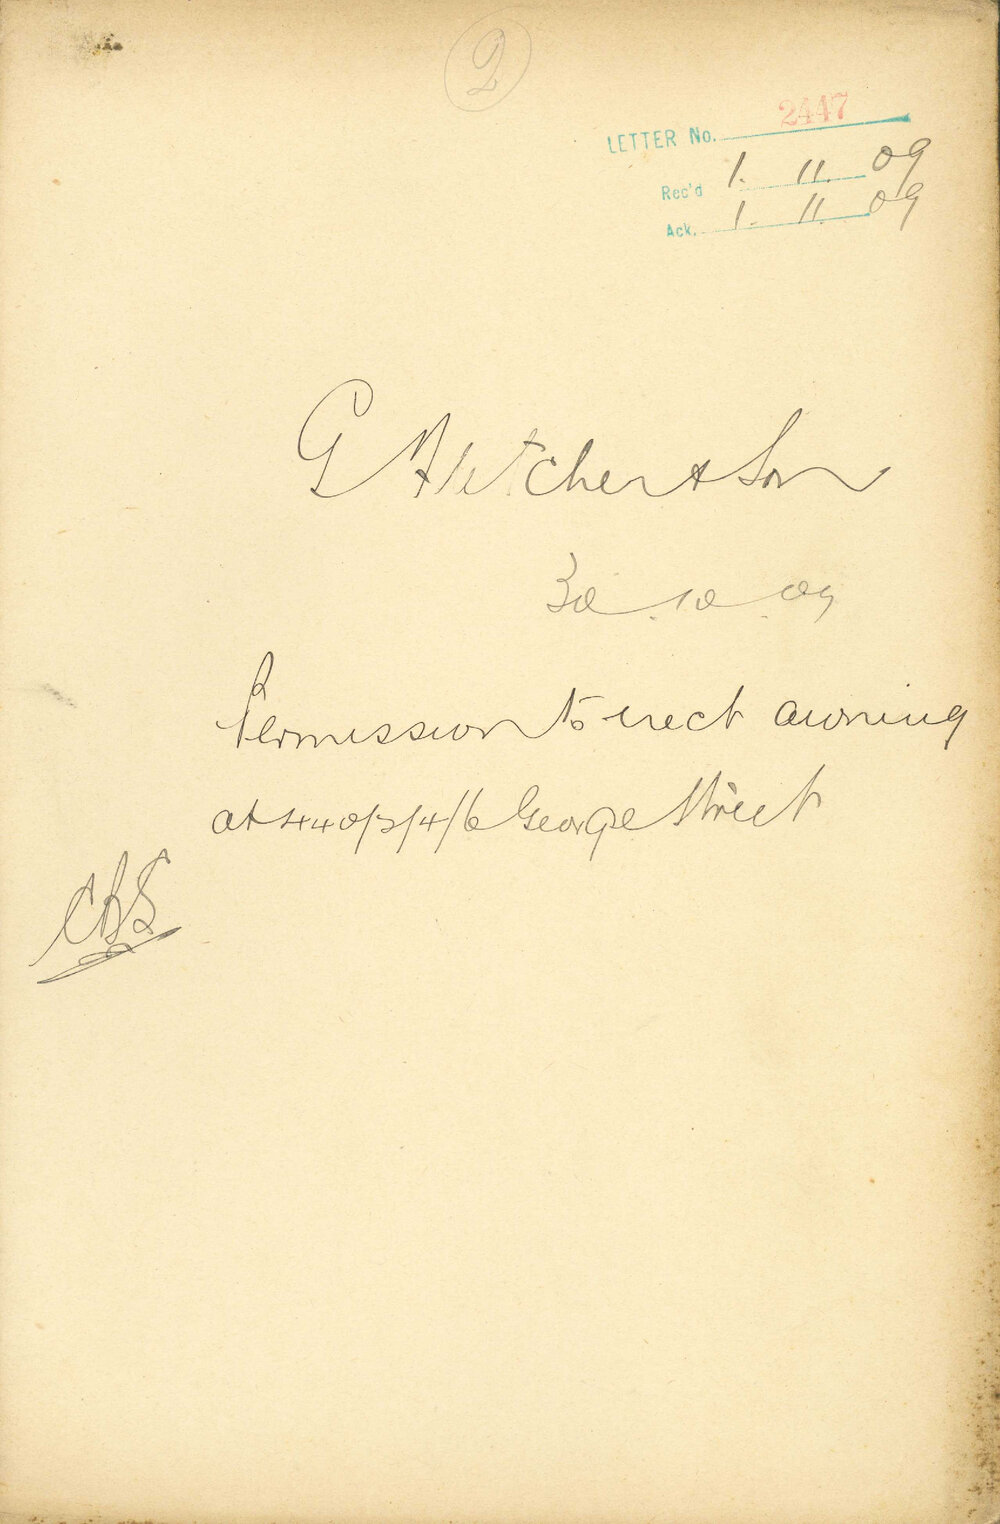 2
LETTER No. 2447
Rec'd 1. 11. 09
Ack. 1. 11. 09
G Fletcher & Son
30.10.09
Permission to erect awning
at 440/2/4/6 George Street